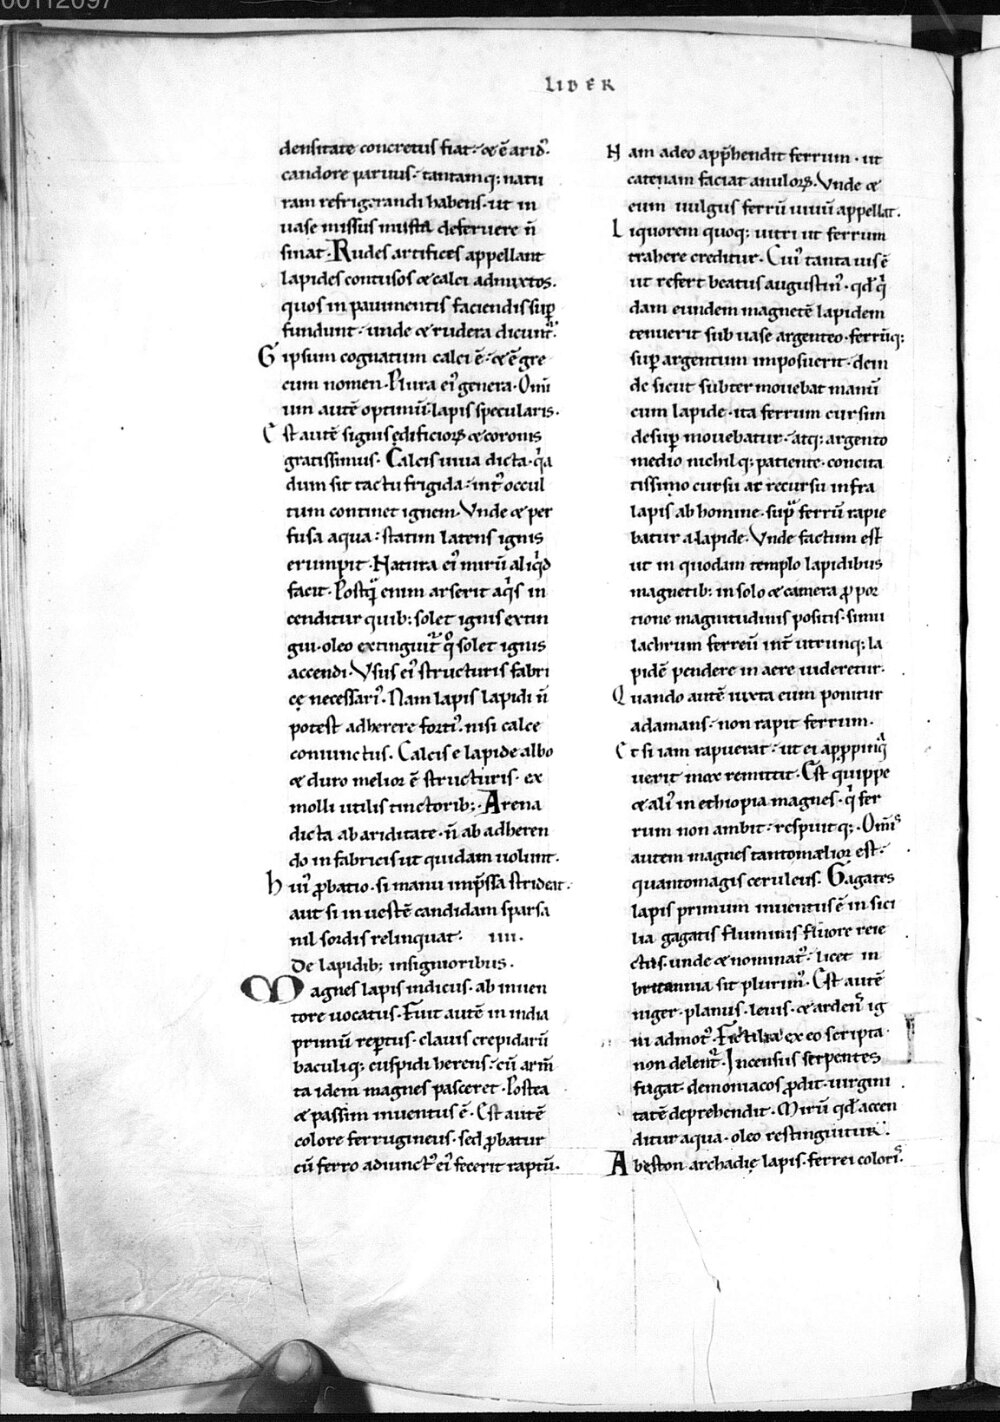 00112097
LIBER
densitate concretus fiat· & ē arid᷒·
candore paruus· tantamq; natu
ram refrigerandi habens· ut in
uase missus musta deferuere n̄
sinat· Rudes artifices appellant
lapides contusos & calci admixtos·
quos in pauimentis faciendis sup̱
fundunt· unde & rudera dicunt᷒·
Gipsum cognatum calci ē· & ē gre
cum nomen· Plura ei᷒ genera· Omi᷒
um autē optimū· lapis specularis·
Est autē signis ędificioꝝ & coronis
gratissimus· Calcis uiua dicta· q̇a
dum sit tactu frigida· int᷒ occul
tum continet ignem· Vnde & per
fusa aqua· statim latens ignis
erumpit· Natura ei᷒ mirū aliq̇d
facit· Postq̄ enim arserit aq̇s in
cenditur quib; solet ignis extin
gui· oleo extinguit᷒ q̊ solet ignis
accendi· Vsus ei᷒ structuris fabri
cę necessari᷒· Nam lapis lapidi n̄
potest adherere forti᷒· nisi calce
coniunctus· Calcis e lapide albo
& duro melior ē structuris· ex
molli utilis tinctorib;· Arena
dicta ab ariditate· n̄ ab adheren
do in fabricis ut quidam uolunt·
hui᷒ ꝓbatio· si manu imp̄ssa strideat·
aut si in uestē candidam sparsa
nil sordis relinquat· IIII·
De lapidib; insignioribus·
Magnes lapis indicus· ab inuen
tore uocatus· Fuit autē in india
primū rep̱tus· clauis crepidarū
baculiq; cuspidi herens· cū arm̄
ta idem magnes pasceret· Postea
& passim inuentus ē· Est autē
colore ferrugineus· sed ꝓbatur
cū ferro adiunct᷒ ei᷒ fecerit raptū·
Nam adeo app̄hendit ferrum· ut
catenam faciat anuloꝝ· Vnde &
eum uulgus ferrū uiuū appellat·
Liquorem quoq; uitri ut ferrum
trahere creditur· Cui᷒ tanta uis ē
ut refert beatus augustin᷒· qđ q̇
dam eundem magnetē lapidem
tenuerit sub uase argenteo· ferrūq;
sup̱ argentum imposuerit· dein
de sicut subter mouebat manū
cum lapide· ita ferrum cursim
desup̱ mouebatur· atq; argento
medio nichilq; patiente· concita
tissimo cursu ac recursu infra
lapis ab homine· supͣ ferrū rapie
batur a lapide· Vnde factum est
ut in quodam templo lapidibus
magnetib; in solo & camera ꝓ por
tione magnitudinis positis· simu
lachrum ferreū int᷒ utrunq; la
pidē pendere in aere uideretur·
Quando autē iuxta eum ponitur
adamans· non rapit ferrum·
Et si iam rapuerat· ut ei apꝓpinq̄
uerit mox remittit· Est quippe
& ali᷒ in ethiopia magnes· q̇ fer
rum non ambit· respuitq;· Omīs
autem magnes tanto melior est·
quanto magis ceruleus· Gagates
lapis primum inuentus ē in sici
lia gagatis fluminis fluore reie
ctus· unde & nominat᷒· licet in
britannia sit plurim᷒· Est autē
niger· planus· leuis· & ardens᷒ ig
ni admot᷒· Fictilia ex eo scripta
non delent᷒· Incensus serpentes
fugat· demoniacos ꝓdit· uirgini
tatē deprehendit· Mirū qđ accen
ditur aqua· oleo restinguitur·
Abęston archadię lapis· ferrei colori᷒·